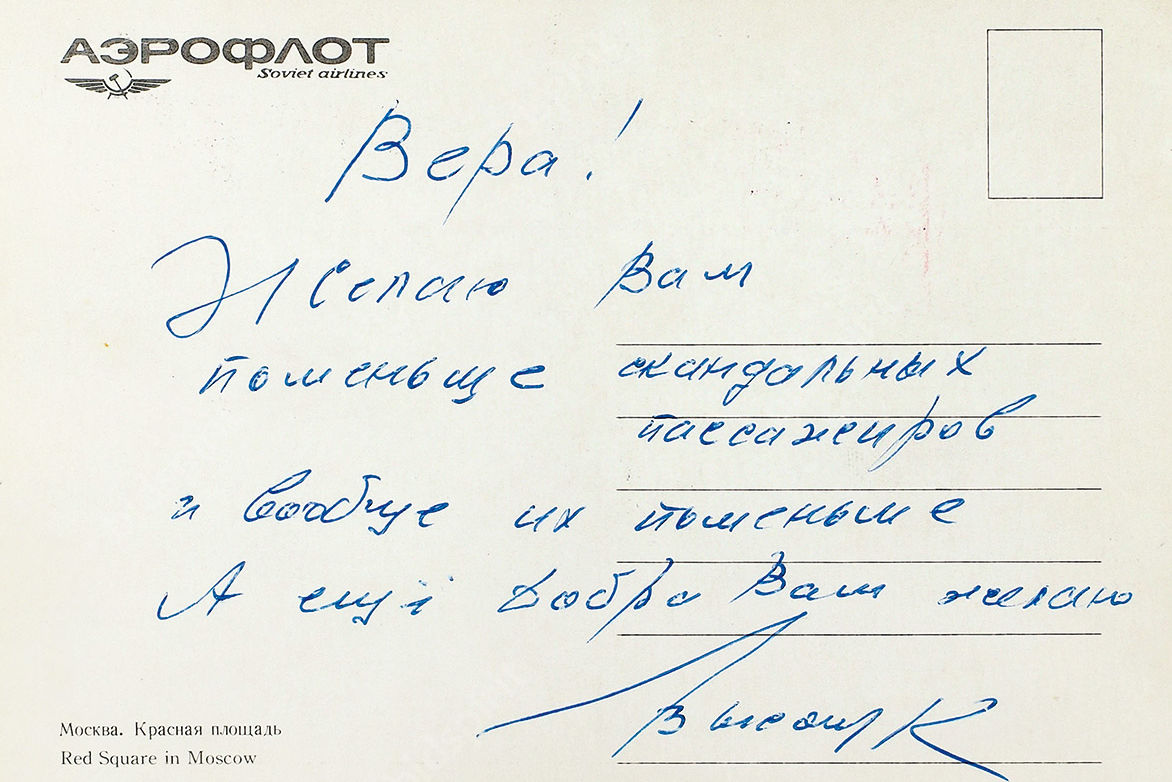 АЭРОФЛОТ
Soviet airlines
Вера!
Желаю Вам
поменьше скандальных
пассажиров
и вообще их поменьше
А ещё Добра Вам желаю
Москва. Красная площадь
Red Square in Moscow